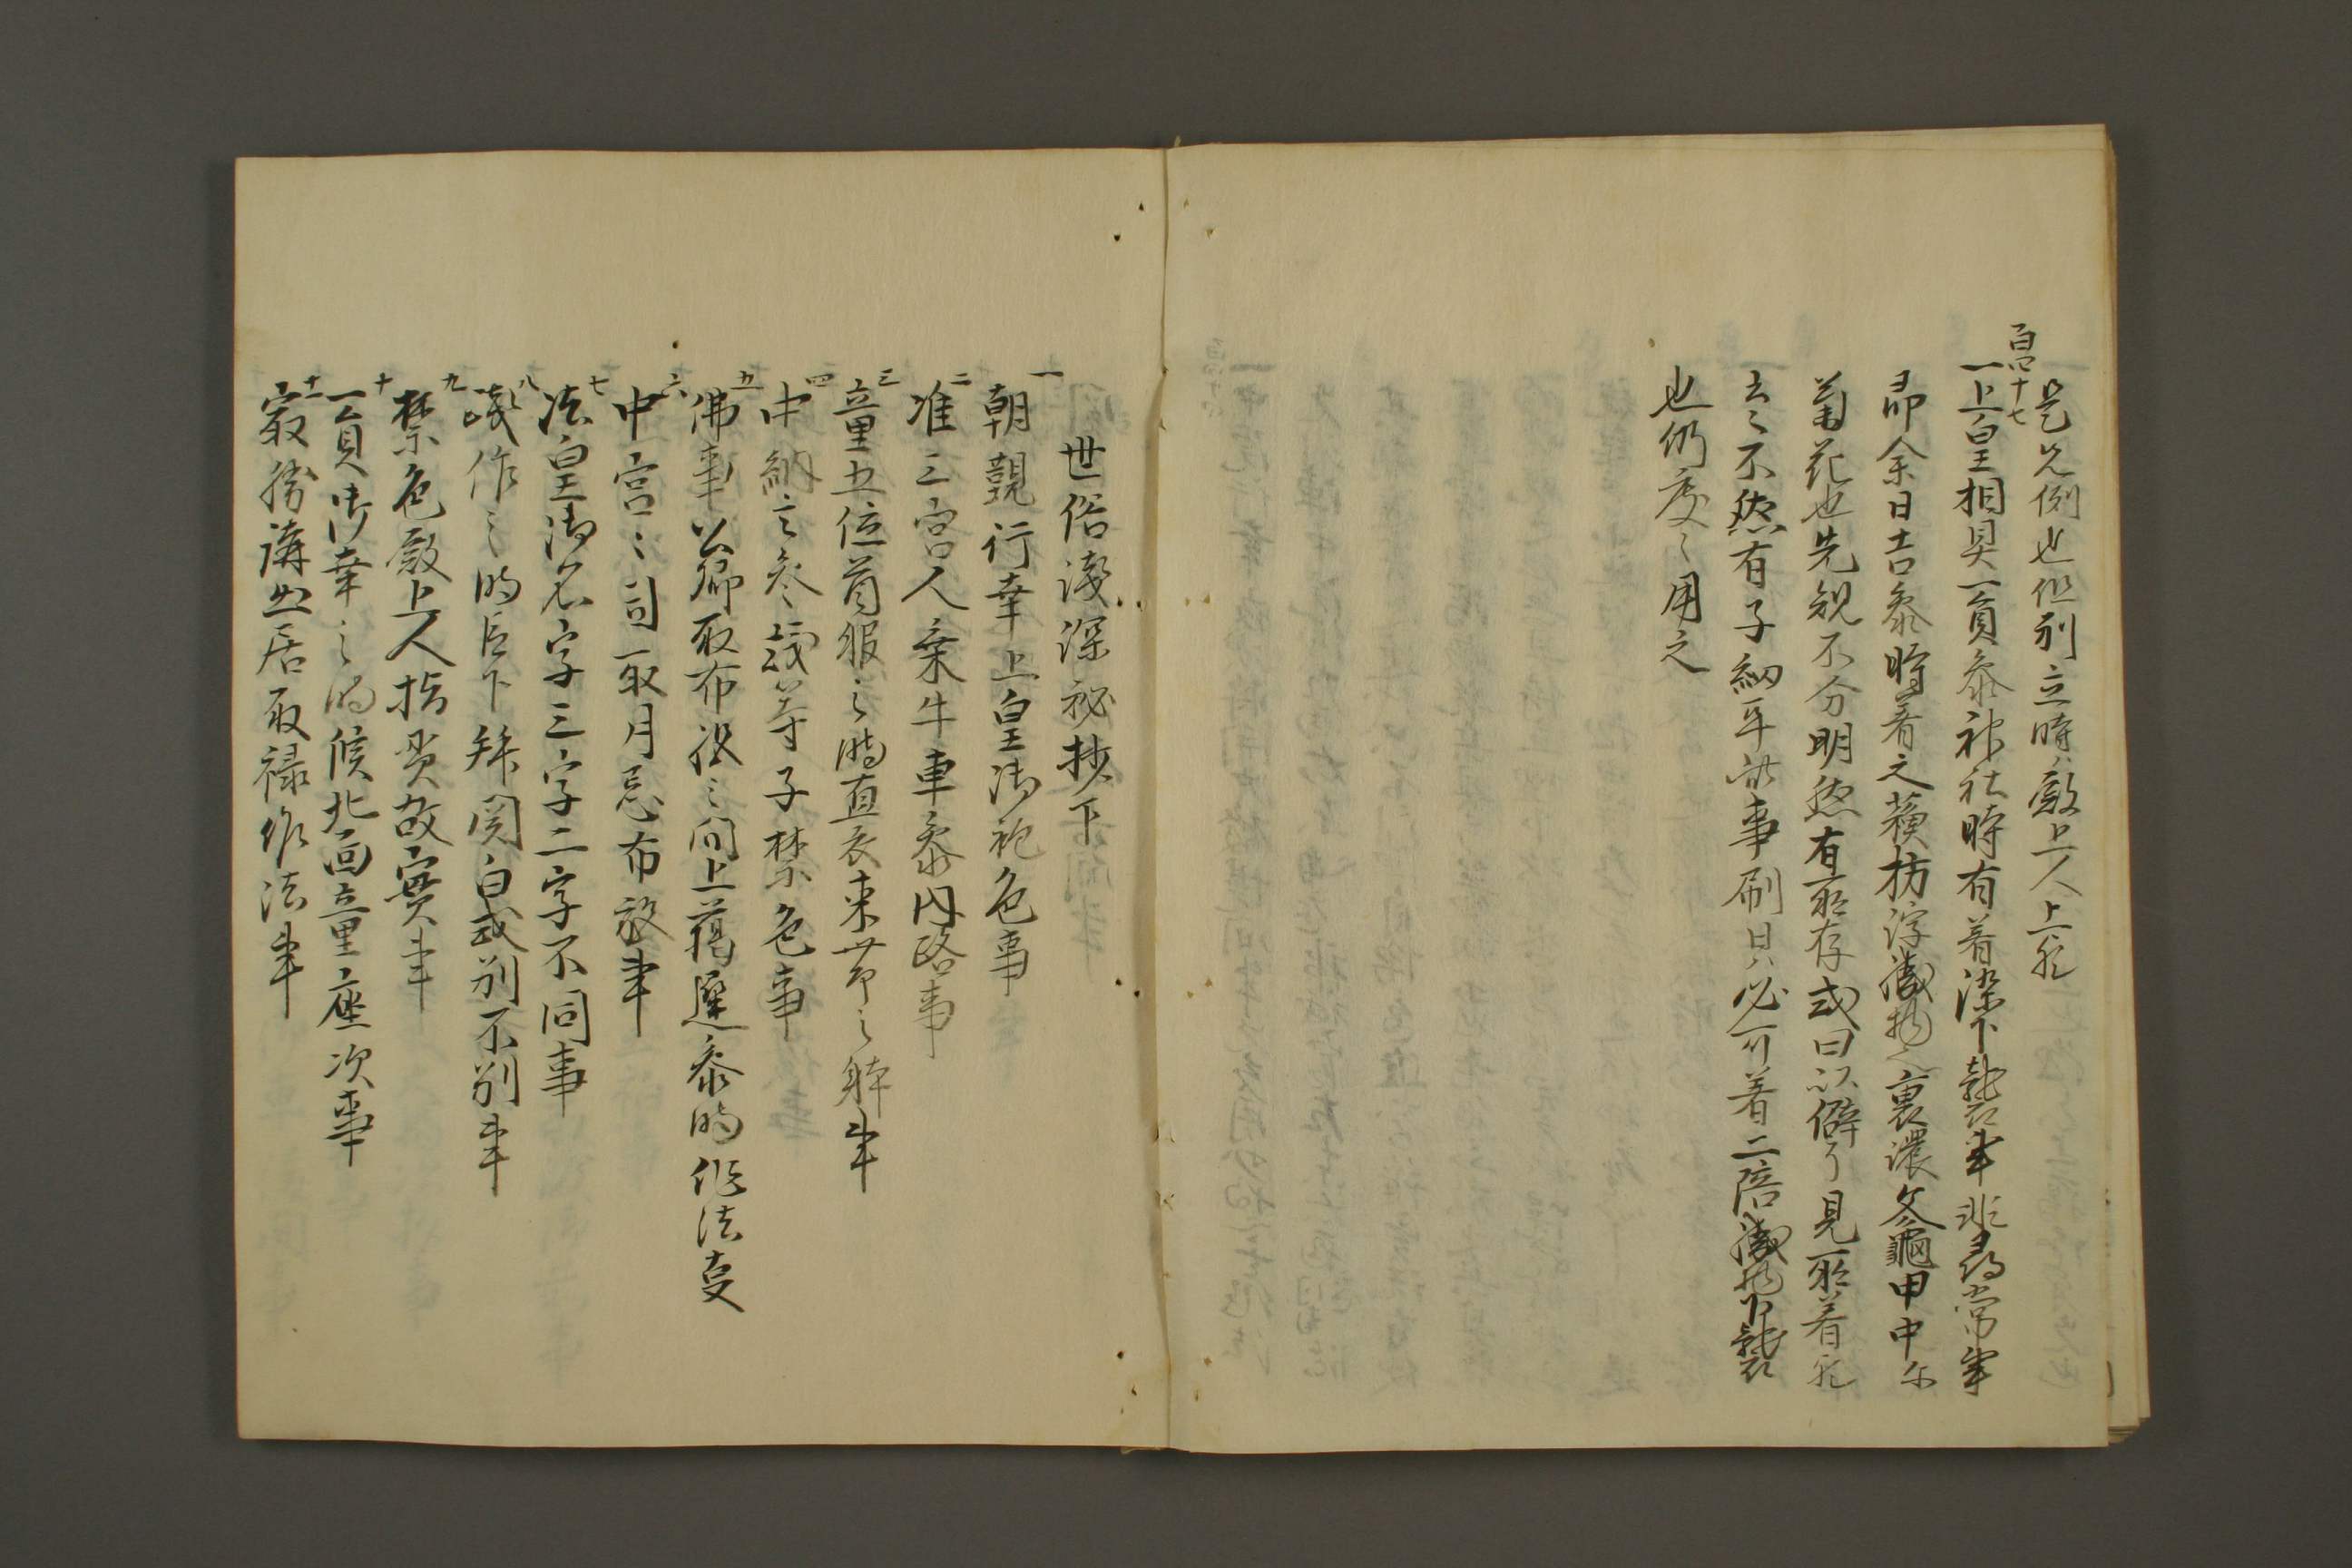 是先例也但別立時ハ殿上人上歟
百四十七
一上皇相具一員参社時有着染下襲事非尋常事
即余日吉参時着之蘓枋浮織物之裏濃文龜甲中ニ
菊花也先規不分明然有所存或曰以僻了見所着歟
云々不然有子細耳此事刷日ハ必可着二陪織物下襲
也仍度々用之
世俗淺深秘抄下
一
朝覲行幸上皇御袍色事
二
准三宮人乗牛車参内路事
三
童五位首服之時直衣束带之躰事
四
中納言参議等子禁色事
五
佛事公卿取布施之間上﨟遲参時作法事
六
中宮々司取月忌布施事
七
法皇御名字三字二字不同事
八
議作之時臣下拜関白或別不別事
九
禁色殿上人指貫故實事
十
一員御幸之時候北面童座次事
十一
最勝講出居取禄作法事